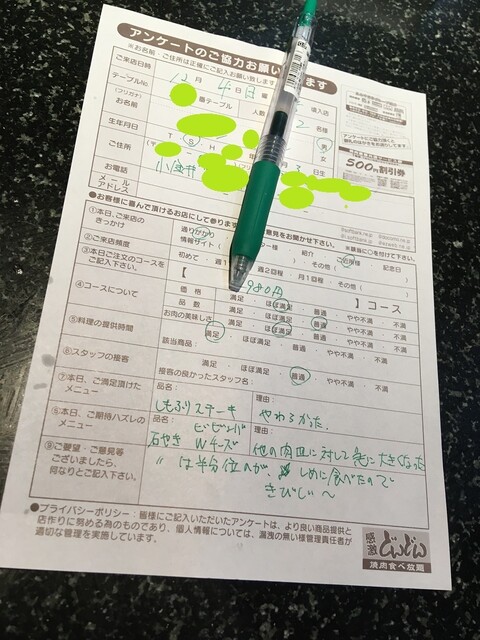 アンケートのご協力お願い
ます
※お名前・ご住所は正確にご記入お願い致します
ご来店日時
12月 4日
頃入店
テーブルNo.
番テーブル
人数
2名様
(フリガナ)
お名前
男
女
生年月日
T・S・H
3日生
ご住所
小金井
お電話
メール
アドレス
アンケートにご協力頂くと
500円割引券
●お客様に喜んで頂けるお店にして参ります
意見をお聞かせ下さい。
※該当に○を付けて下さい。
①本日、ご来店の
きっかけ
通りがかり
情報サイト(
紹介・ご近所様・記念日
その他(
②ご来店頻度
初めて・週1
週2回程・月1回程・その他(
③本日ご注文のコースを
ご記入下さい。
【
980円
】コース
④コースについて
価格
満足・ほぼ満足・普通・やや不満・不満
品数
満足・ほぼ満足・普通・やや不満・不満
お肉の美味しさ
満足・ほぼ満足・普通・やや不満・不満
⑤料理の提供時間
満足・ほぼ満足・普通・やや不満・不満
該当商品:
⑥スタッフの接客
満足・ほぼ満足・普通・やや不満・不満
接客の良かったスタッフ名:
⑦本日、ご満足頂けた
メニュー
品名:
しもふりステーキ
理由:
やわらかった.
⑧本日、ご期待ハズレの
メニュー
品名:
ビビンバ
石やき Wチーズ
理由:
他の肉皿に対して急に大きくなった
⑨ご要望・ご意見等
ございましたら、
何なりとご記入下さい。
〃 は半分位のが、しめに食べたので
きびしい〜
●プライバシーポリシー:皆様にご記入いただいたアンケートは、より良い商品提供と
店作りに努める為のものであり、個人情報については、漏洩の無い様管理責任者が
適切な管理を実施しています。
感激
どんどん
焼肉食べ放題